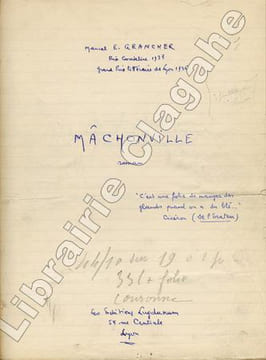 Marcel E. GRANCHER
Prix Courteline 1939
Grand Prix littéraire de Lyon 1937
MÂCHONVILLE
roman
"C'est une folie de manger des
glands quand on a du blé."
Cicéron (de l'orateur)
sur 19
33 l + folio
Les Editions Lugdunum
rue Centrale
Lyon
Librairie Clagahe